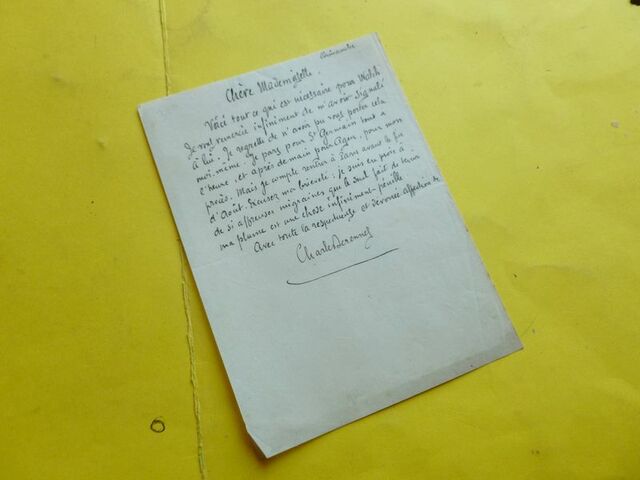 Dimanche
Chère Mademoiselle.
Voici tout ce qui est nécessaire pour Walch.
Je vous remercie infiniment de m'avoir signalé
à lui. Je regrette de n'avoir pu vous porter cela
moi-même. Je pars pour St Germain tout à
l'heure, et après demain pour Agen, pour mon
procès. Mais je compte rentrer à Paris avant la fin
d'Août. Excusez ma brièveté : je suis en proie à
de si affreuses migraines que le seul fait de tenir
ma plume est une chose infiniment pénible
Avec toute la respectueuse et dévouée affection de
Charles Derennes